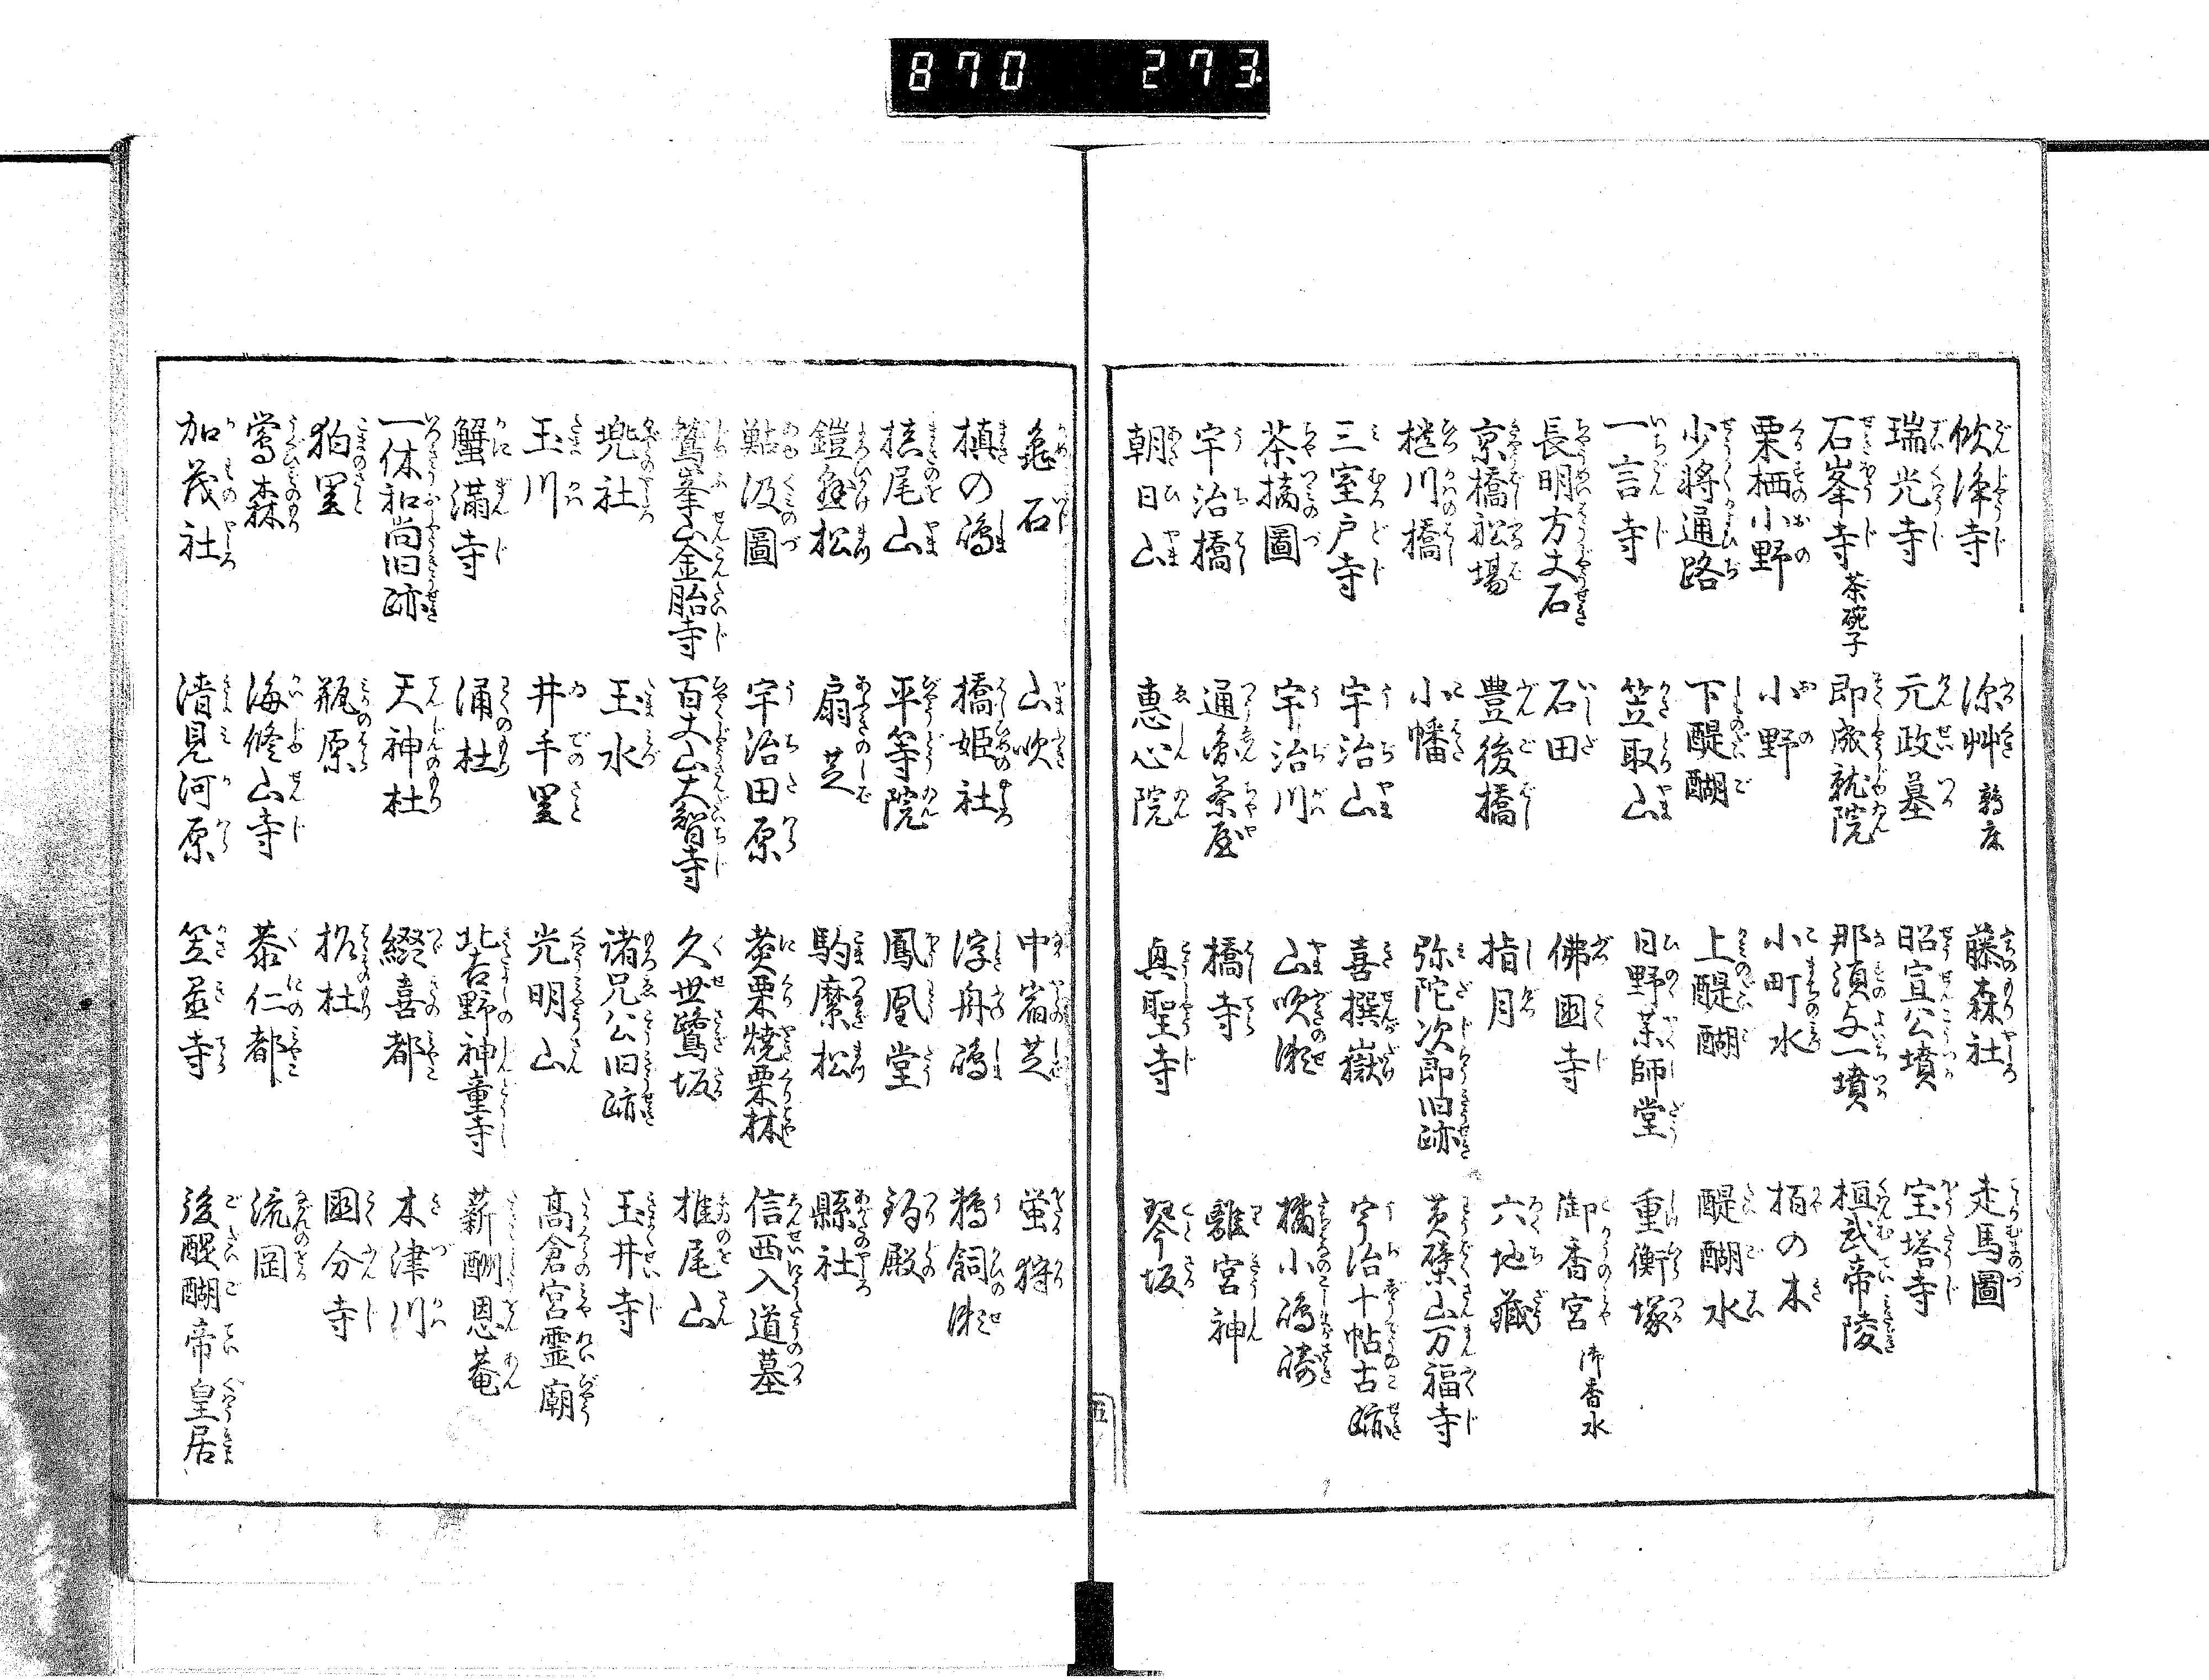 870 273
欣浄寺 深艸 鶉床 藤森社 走馬圖
瑞光寺 元政墓 昭宣公墳 宝塔寺
石峯寺 茶碗子 即成就院 那須与一墳 桓武帝陵
栗栖小野 小野 小町水 栢の木
少将通路 下醍醐 上醍醐 醍醐水
一言寺 笠取山 日野薬師堂 重衡塚
長明方丈石 石田 佛國寺 御香宮 御香水
京橋舩場 豊後橋 指月 六地藏
櫃川橋 小幡 弥陀次郎旧跡 黄檗山万福寺
三室戸寺 宇治山 喜撰嶽 宇治十帖古跡
茶摘圖 宇治川 山吹瀬 橘小嶋崎
宇治橋 通圓茶屋 橋寺 離宮神
朝日山 惠心院 興聖寺 琴坂
亀石 山吹 中宿芝 蛍狩
槙の嶋 橋姫社 浮舟嶋 鵜飼瀬
槙尾山 平等院 鳳凰堂 釣殿
鎧懸松 扇芝 駒縻松 縣社
鮎汲圖 宇治田原 煑栗焼栗林 信西入道墓
鷲峯山金胎寺 百丈山大智寺 久世鷺坂 椎尾山
兜社 玉水 諸兄公旧跡 玉井寺
玉川 井手里 光明山 高倉宮霊廟
蟹満寺 涌杜 北吉野神童寺 薪酬恩菴
一休和尚旧跡 天神杜 綴喜都 木津川
狛里 瓶原 柞杜 國分寺
鶯森 海住山寺 恭仁都 流岡
加茂社 清見河原 笠置寺 後醍醐帝皇居